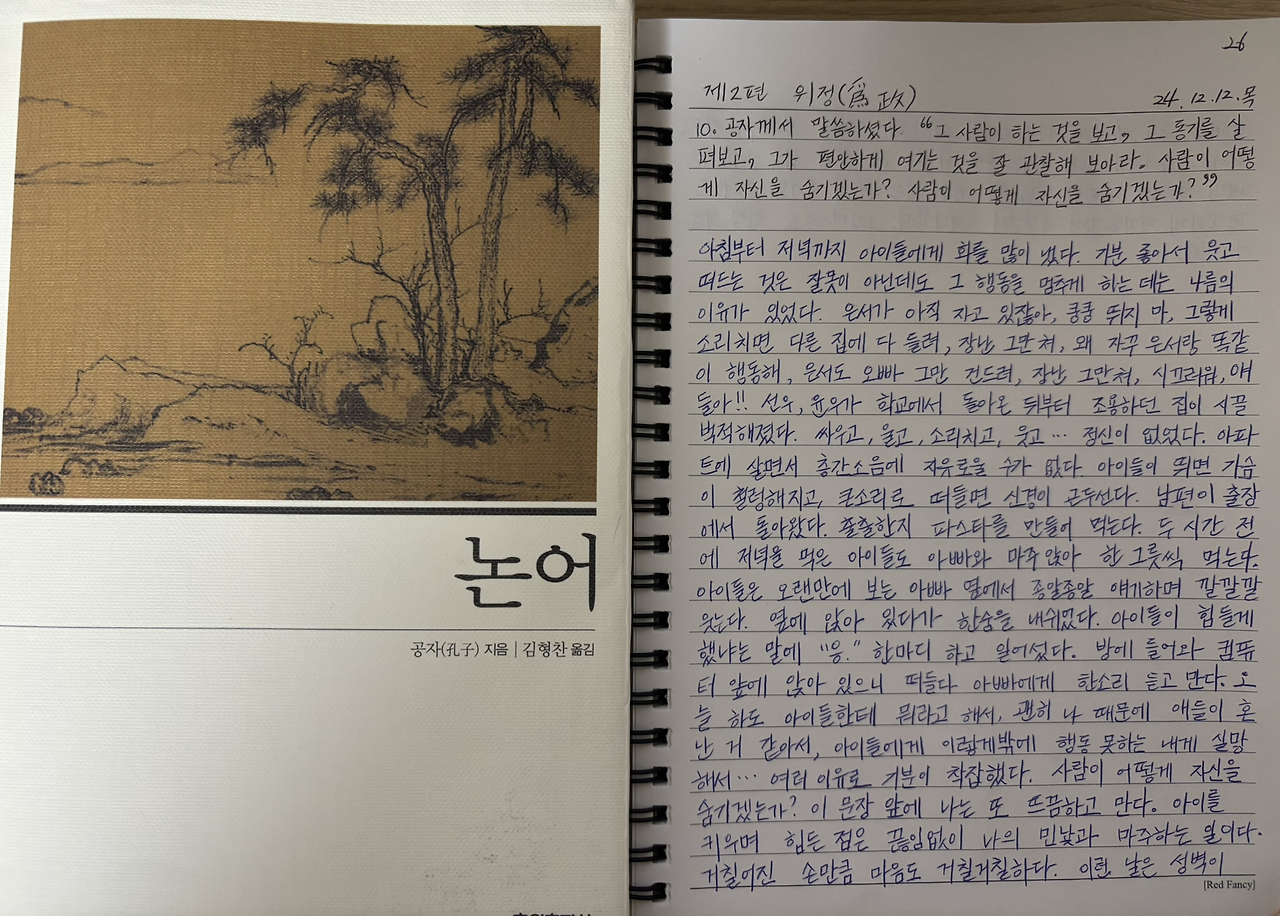 논어
공자(孔子) 지음 | 김형찬 옮김
26
제2편 위정(爲政)
24.12.12.목
10. 공자께서 말씀하셨다. "그 사람이 하는 것을 보고, 그 동기를 살
펴보고, 그가 편안하게 여기는 것을 잘 관찰해 보아라. 사람이 어떻
게 자신을 숨기겠는가? 사람이 어떻게 자신을 숨기겠는가?"
아침부터 저녁까지 아이들에게 화를 많이 냈다. 기분 좋아서 웃고
떠드는 것은 잘못이 아닌데도 그 행동을 멈추게 하는 데는 나름의
이유가 있었다. 은서가 아직 자고 있잖아, 쿵쿵 뛰지 마, 그렇게
소리치면 다른 집에 다 들려, 장난 그만 쳐, 왜 자꾸 은서랑 똑같
이 행동해, 은서도 오빠 그만 건드려, 장난 그만쳐, 시끄러워, 얘
들아!! 선우, 윤우가 학교에서 돌아온 뒤부터 조용하던 집이 시끌
벅적해졌다. 싸우고, 울고, 소리치고, 웃고… 정신이 없었다. 아파
트에 살면서 층간소음에 자유로울 수가 없다. 아이들이 뛰면 가슴
이 철렁해지고, 큰소리로 떠들면 신경이 곤두선다. 남편이 출장
에서 돌아왔다. 출출한지 파스타를 만들어 먹는다. 두 시간 전
에 저녁을 먹은 아이들도 아빠와 마주 앉아 한 그릇씩 먹는다.
아이들은 오랜만에 보는 아빠 옆에서 종알종알 얘기하며 깔깔깔
웃는다. 옆에 앉아 있다가 한숨을 내쉬었다. 아이들이 힘들게
했냐는 말에 "응." 한마디 하고 일어섰다. 방에 들어와 컴퓨
터 앞에 앉아 있으니 떠들다 아빠에게 한소리 듣고 만다. 오
늘 하도 아이들한테 뭐라고 해서, 괜히 나 때문에 애들이 혼
난 거 같아서, 아이들에게 이렇게밖에 행동 못하는 내게 실망
해서… 여러 이유로 기분이 착잡했다. 사람이 어떻게 자신을
숨기겠는가? 이 문장 앞에 나는 또 뜨끔하고 만다. 아이를
키우며 힘든 점은 끊임없이 나의 민낯과 마주하는 일이다.
거칠어진 손만큼 마음도 거칠거칠하다. 이런 날은 성벽이
[Red Fancy]